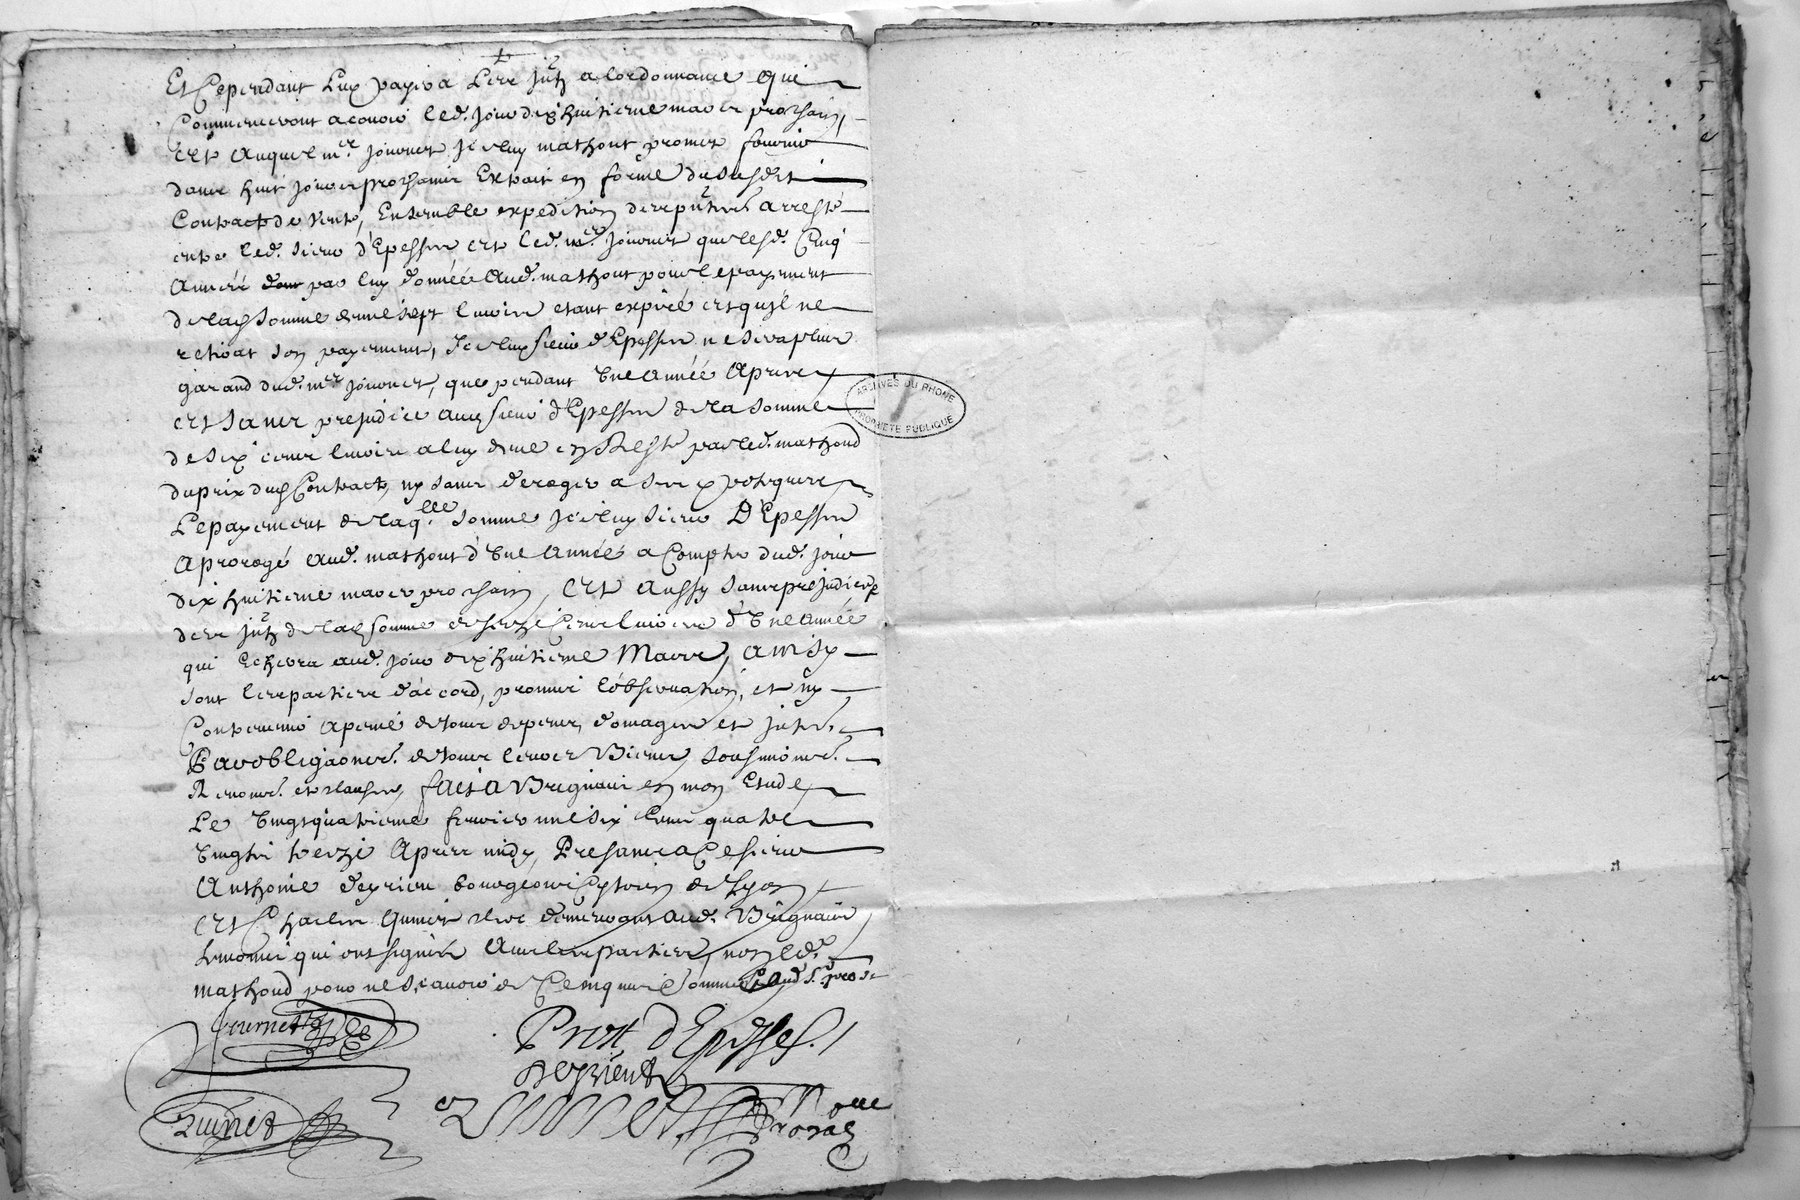 Et Cependant Luy payera Les jntz a lordonnance Qui
Commenceront a courir led. jour dix huitieme mars prochain,
Et Auquel mre. Journet Jceluy mathout promet fournir
dans huit jours prochains Extrait en forme du susdit
Contract de vente, Ensemble expedition
entre led. sieur d'Epesses, et led. mre. Journet que lesd. Cinq
Années par luy données Aud. mathout pour le payement
de lad. somme de mil sept livres etant expirée et qu'il ne
retirat son payement, Jceluy sieur d'Epesses ne sera plus
garand dud. mre Journet, que pendant Une Année Apres
Et sans prejudice aud. sieur d'Epesses de la somme
de six cens livres a luy deue en Reste par led. mathoud
du prix dud. Contract, ny sans deroger a ses
Lepayement de laqlle. somme Jceluy sieur D'Epesses
A prorogé Aud. mathout d'Une Année a Compter dud. jour
dix huitieme mars prochain, Et Aussy sans prejudice
des jntz de lad. somme de seize Cens livres d'Une année
qui Echerra aud. jour dix huitieme Mars, Ainsy
sont les parties d'accord, promis l'observation, et ny
Contrevenir a peine de tous depens, domages et jnts.
Par obligaons. de tous leurs Biens, sousmions.
Renons. et clauses, fait a Brignais en mon Etude
Le Vingt quatrieme fevrier mil six Cens quatre
Vingts treize Apres midy, Presans a Ce sieur
Anthoine deyrieu bourgeois Cytoien de Lyon
Et Charles Quinet clerc demeurant aud. Brignais
temoins qui ont signés Avec les parties, non led.
mathoud pour ne sçavoir de Ce enquis et sommé
Journet
Prost d'Epesses
deyrieu
Quinet